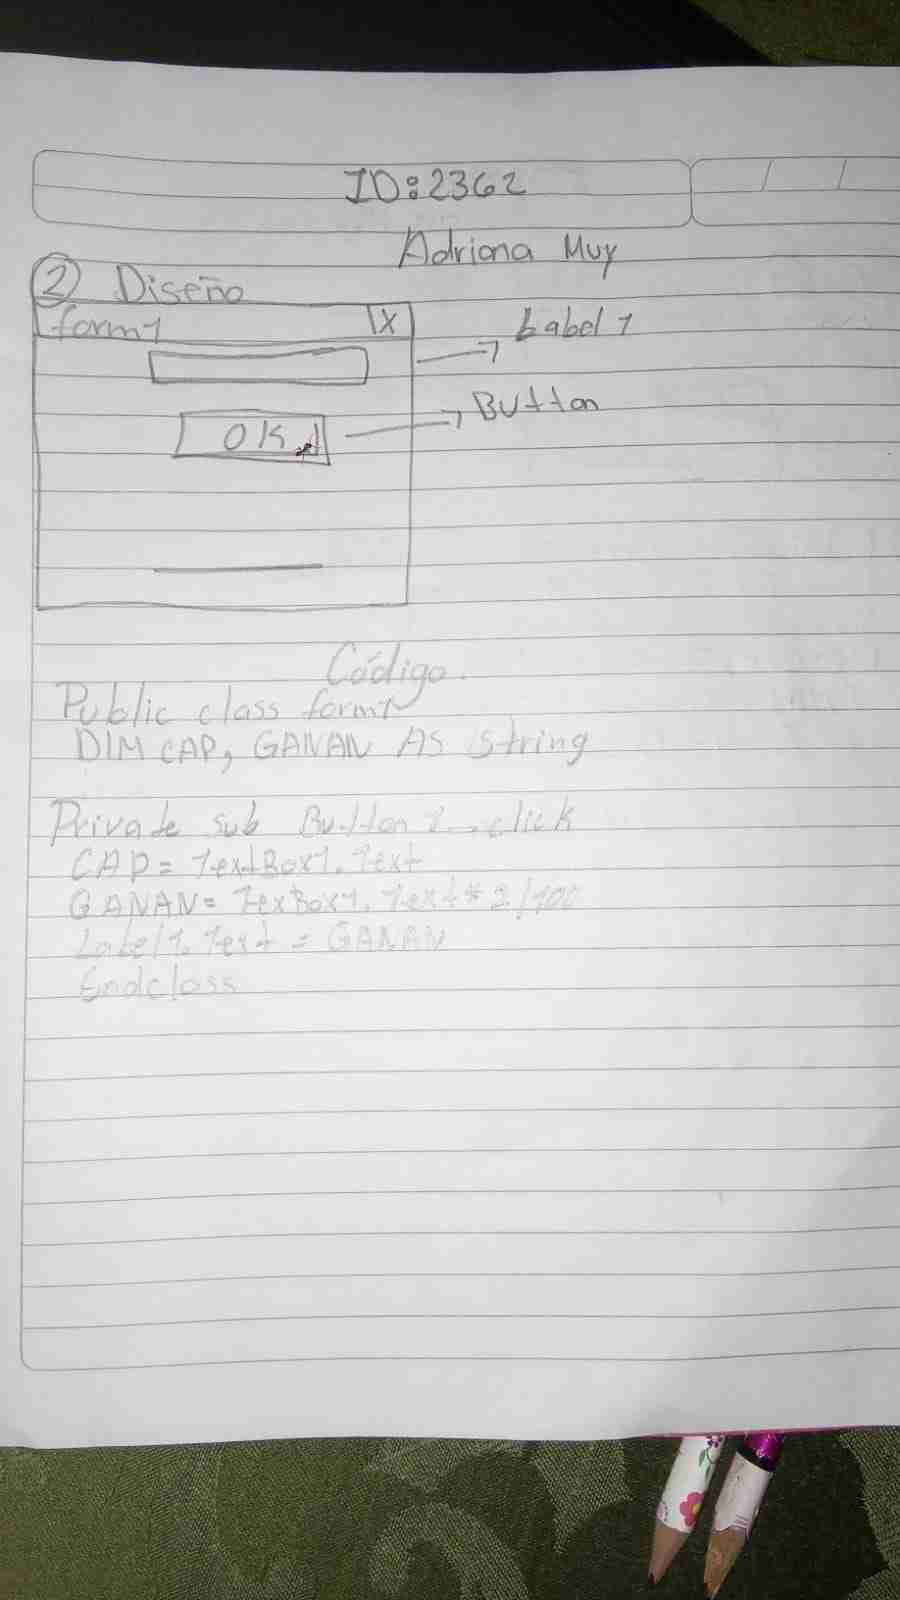 ID:2362
Adriana Muy
2 Diseño
form1 X
Label 1
OK
Button
Código.
Public class form1
DIM CAP, GANAN AS string
Private sub Button 1...click
CAP = TextBox1.Text
GANAN = TexBox1.Text * 2/100
Label1.Text = GANAN
Endclass